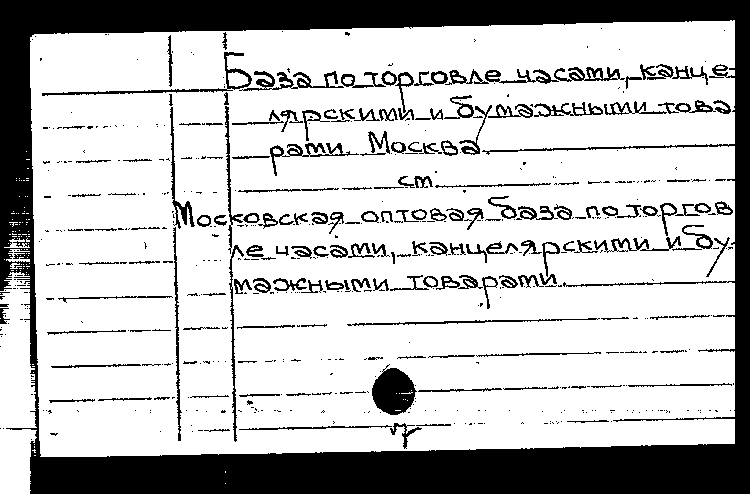 База по торговле часами, канце-
лярскими и бумажными това
рами. Москва.
см.
Московская оптовая база по торгов
ле часами, канцелярскими и бу-
мажными товарами.